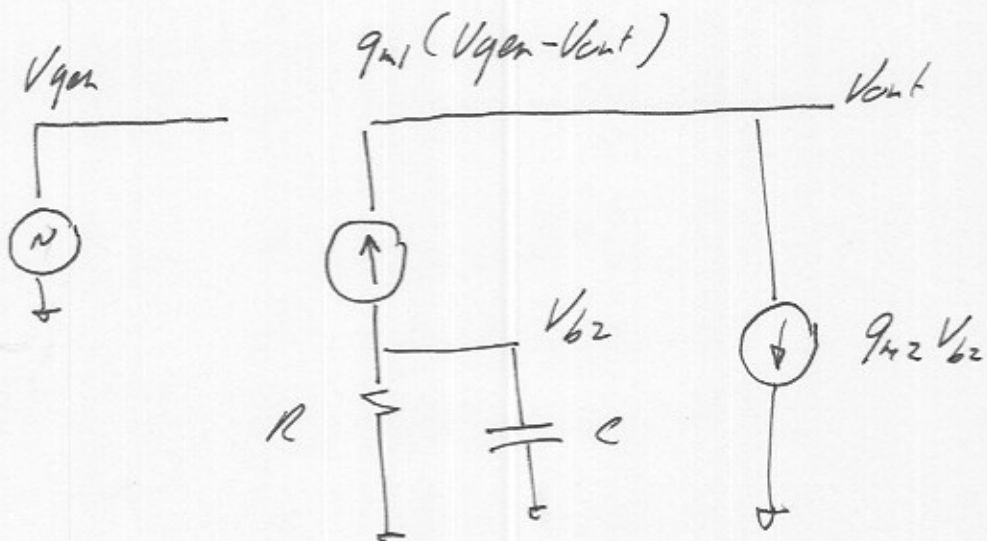 Vgen
gm1(Vgen-Vout)
Vout
Vb2
gm2Vb2
R
C